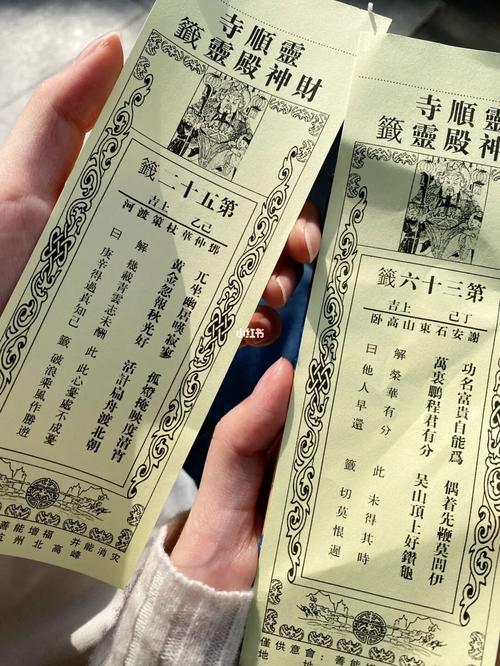 靈順寺
財神殿靈籤
第五十二籤
己乙 上吉
鄧仲華杖策渡河
兀坐幽居嘆寂寥 孤燈掩映度清宵
黃金忽報秋光好 活計扁舟渡北朝
解 幾載青雲志未酬 此 此心憂處不成憂
曰 庚辛得過真知己 籤 破浪乘風作勝遊
善能增福 并能消災
杭州北高峰
小红书
靈順寺
神殿靈籤
第三十六籤
丁己 上吉
謝安石東山高臥
功名富貴自能爲 偶着先鞭莫問伊
萬裏鵬程君有分 吳山頂上好鑽龜
解 榮華有分 此 未得其時
曰 他人早還 籤 切莫恨遲
僅供意會：善能
地